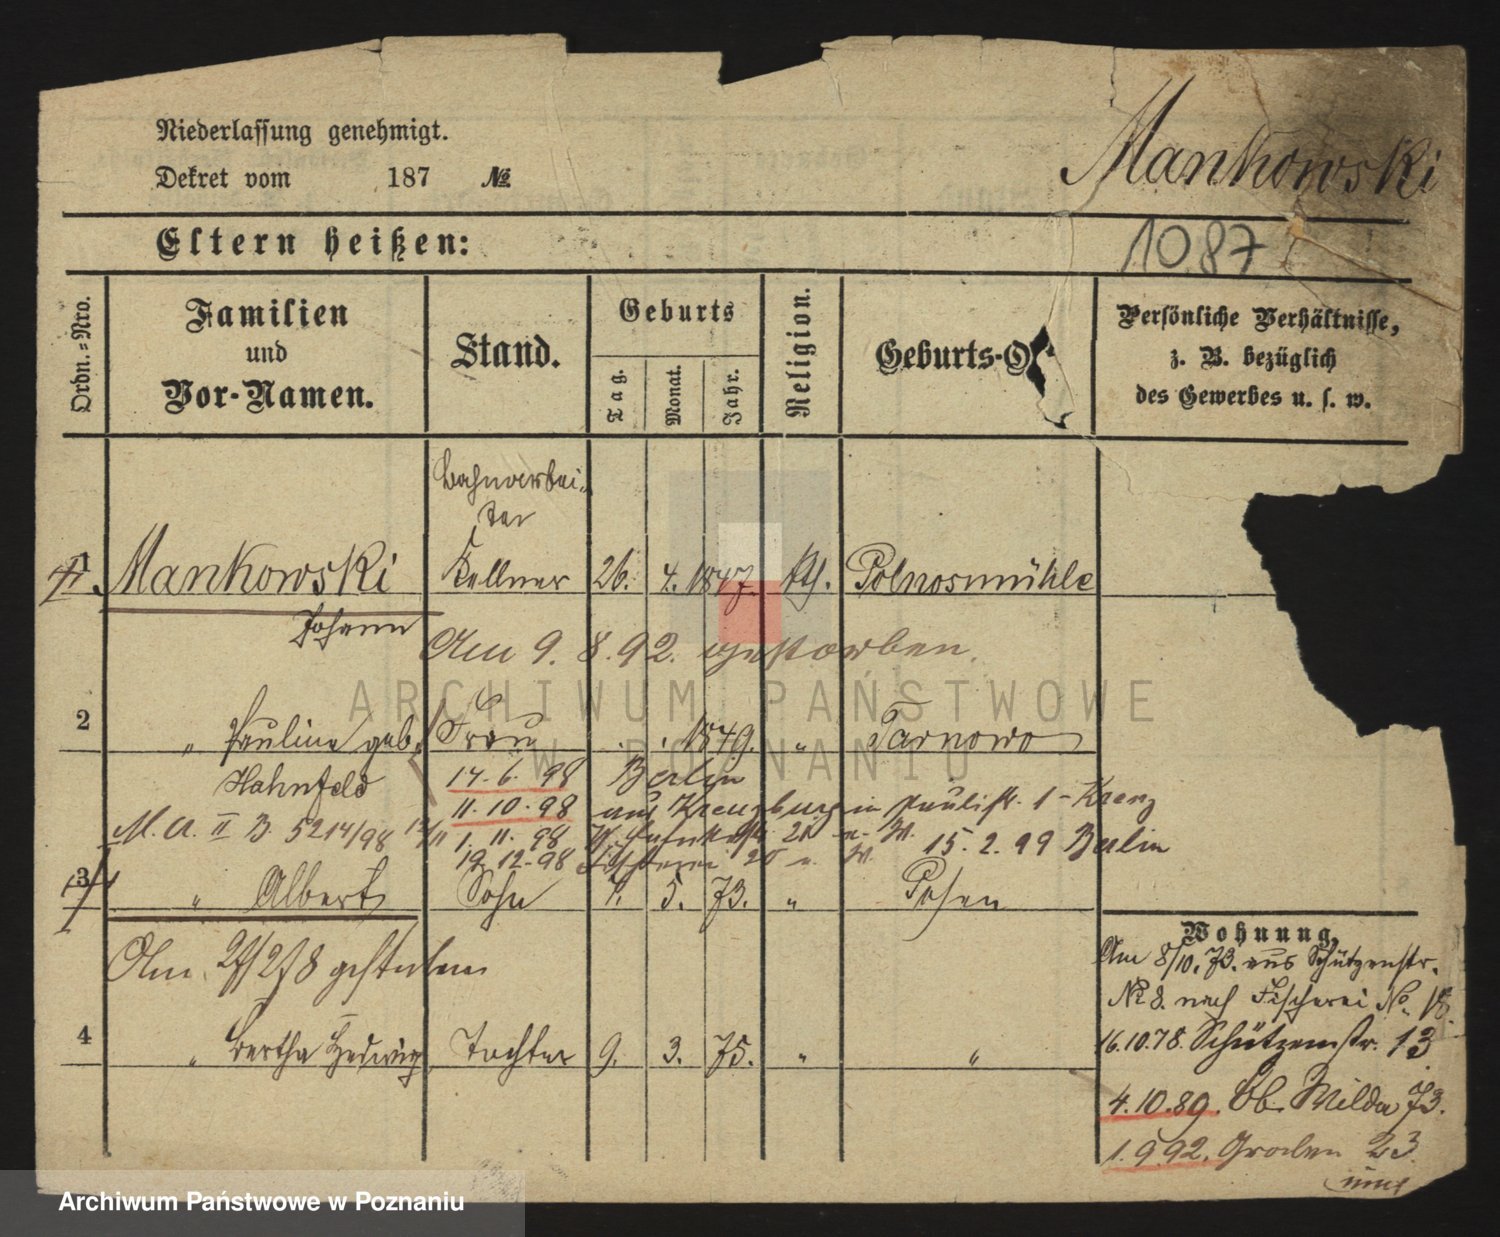 Niederlassung genehmigt.
Dekret vom 187 №
Mankowski
Eltern heißen:
1087
Ordn.-Nro.
Familien
und
Vor-Namen.
Stand.
Geburts
Tag.
Monat.
Jahr.
Religion.
Geburts-O
Persönliche Verhältnisse,
z. B. bezüglich
des Gewerbes u. s. w.
Bahnarbei-
ter
1. Mankowski Kellner 26. 4. 1847. kth. Polnosmühle
Johann
Am 9. 8. 92. gestorben.
2 " Pauline geb. Frau . . 1849. " Tarnowo
Hahnfeld 17. 6. 98 Berlin
11. 10. 98 aus Kreuzburg in Paulistr. 1 - Krenz
M. A. II B. 5214/98 1. 11. 98
15. 2. 99 Berlin
19. 12. 98 Fischerei 20
3 " Albert Sohn 7. 5. 73. " Posen
Am 27/2 78 gestorben
4 " Bertha Hedwig Tochter 9. 3. 75. " "
Wohnung.
Am 8/10. 73. aus Schützenstr.
№ 8. nach Fischerei No. 18.
16.10.78. Schützenstr. 13
4.10.89. Ob. Wilda 73.
1.9.92. Graben 23
ARCHIWUM PAŃSTWOWE
W POZNANIU
Archiwum Państwowe w Poznaniu